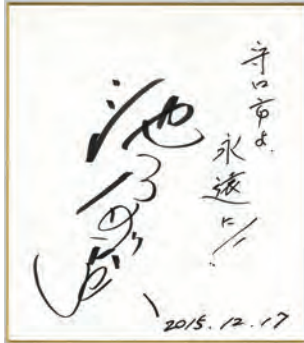 守口市よ、
永遠に!!
池乃めだか
2015.12.17